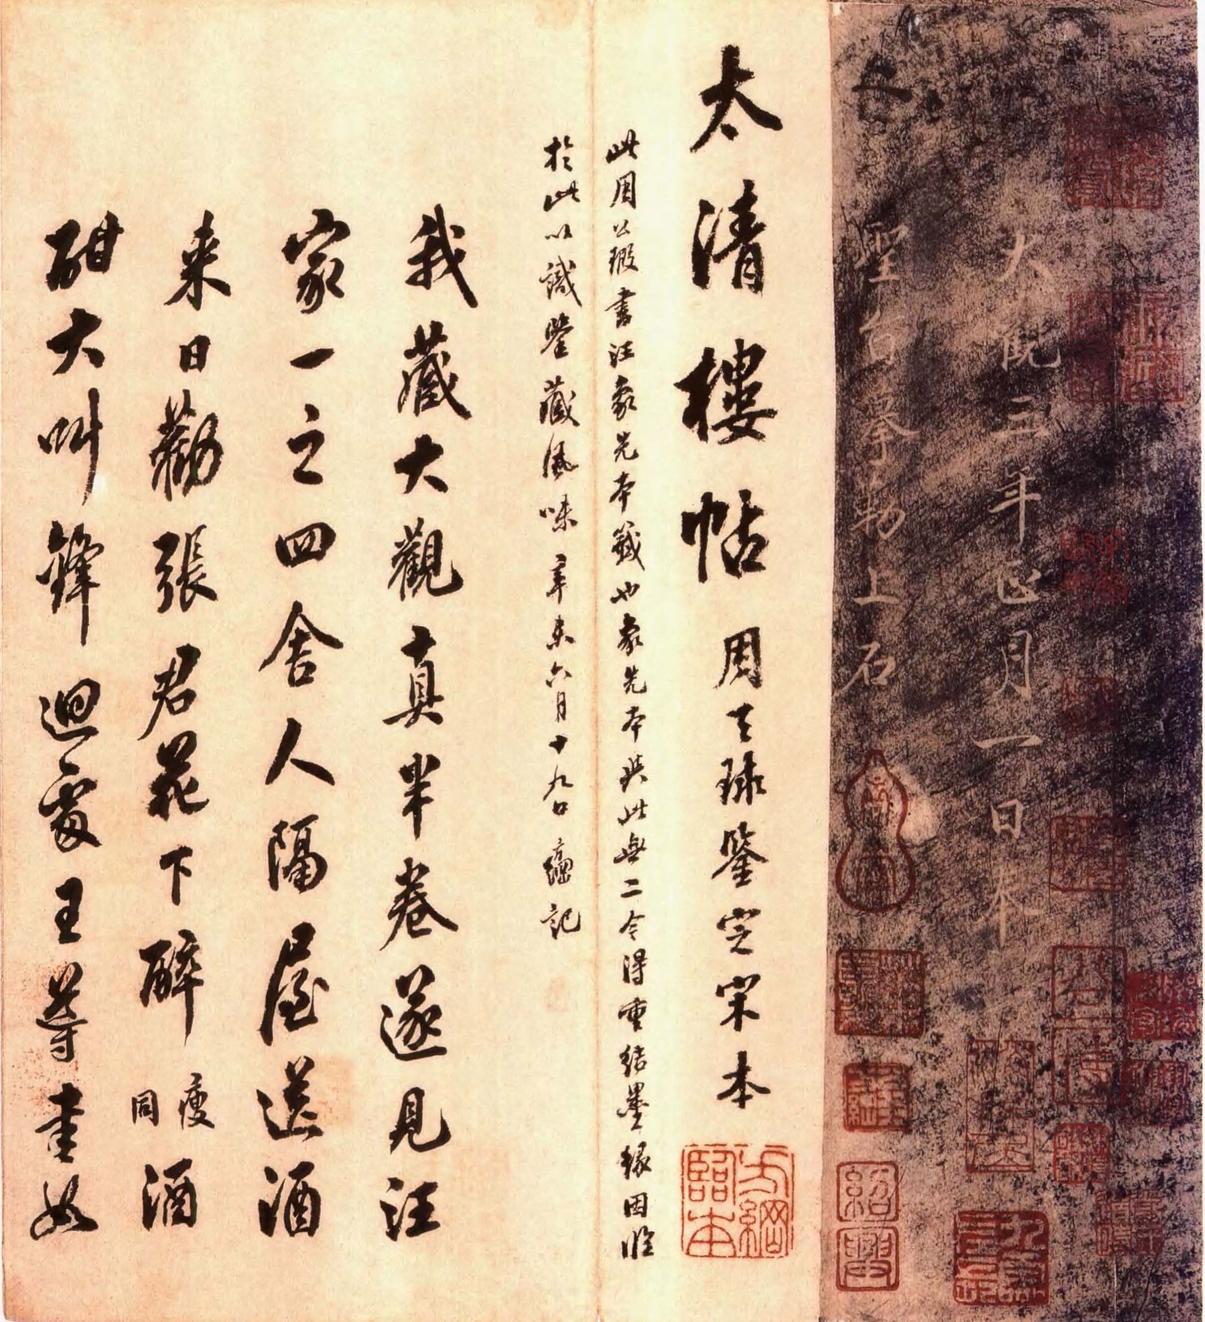 大觀三年正月一日奉
聖旨摹勒上石
太清樓帖 周天球鑒定宋本
此周公瑕書汪象先本籤也象先本與此無二今得重結墨緣因臨
於此以識鑒藏風味 辛未六月十九日 方綱記
我藏大觀真半卷遂見汪
家一之四舍人隔屋送酒
來日勸張君花下醉 瘦同 酒
酣大叫鋒迴處王著書如
方綱臨本
紹興